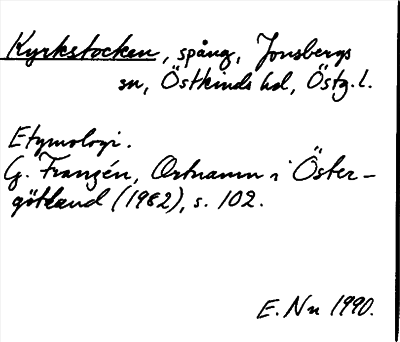 Kyrkstocken, spång, Jonsbergs
sn, Östkinds hd, Östg.l.
Etymologi.
G. Franzén, Ortnamn i Öster-
götland (1982), s. 102.
E. Nn 1990.